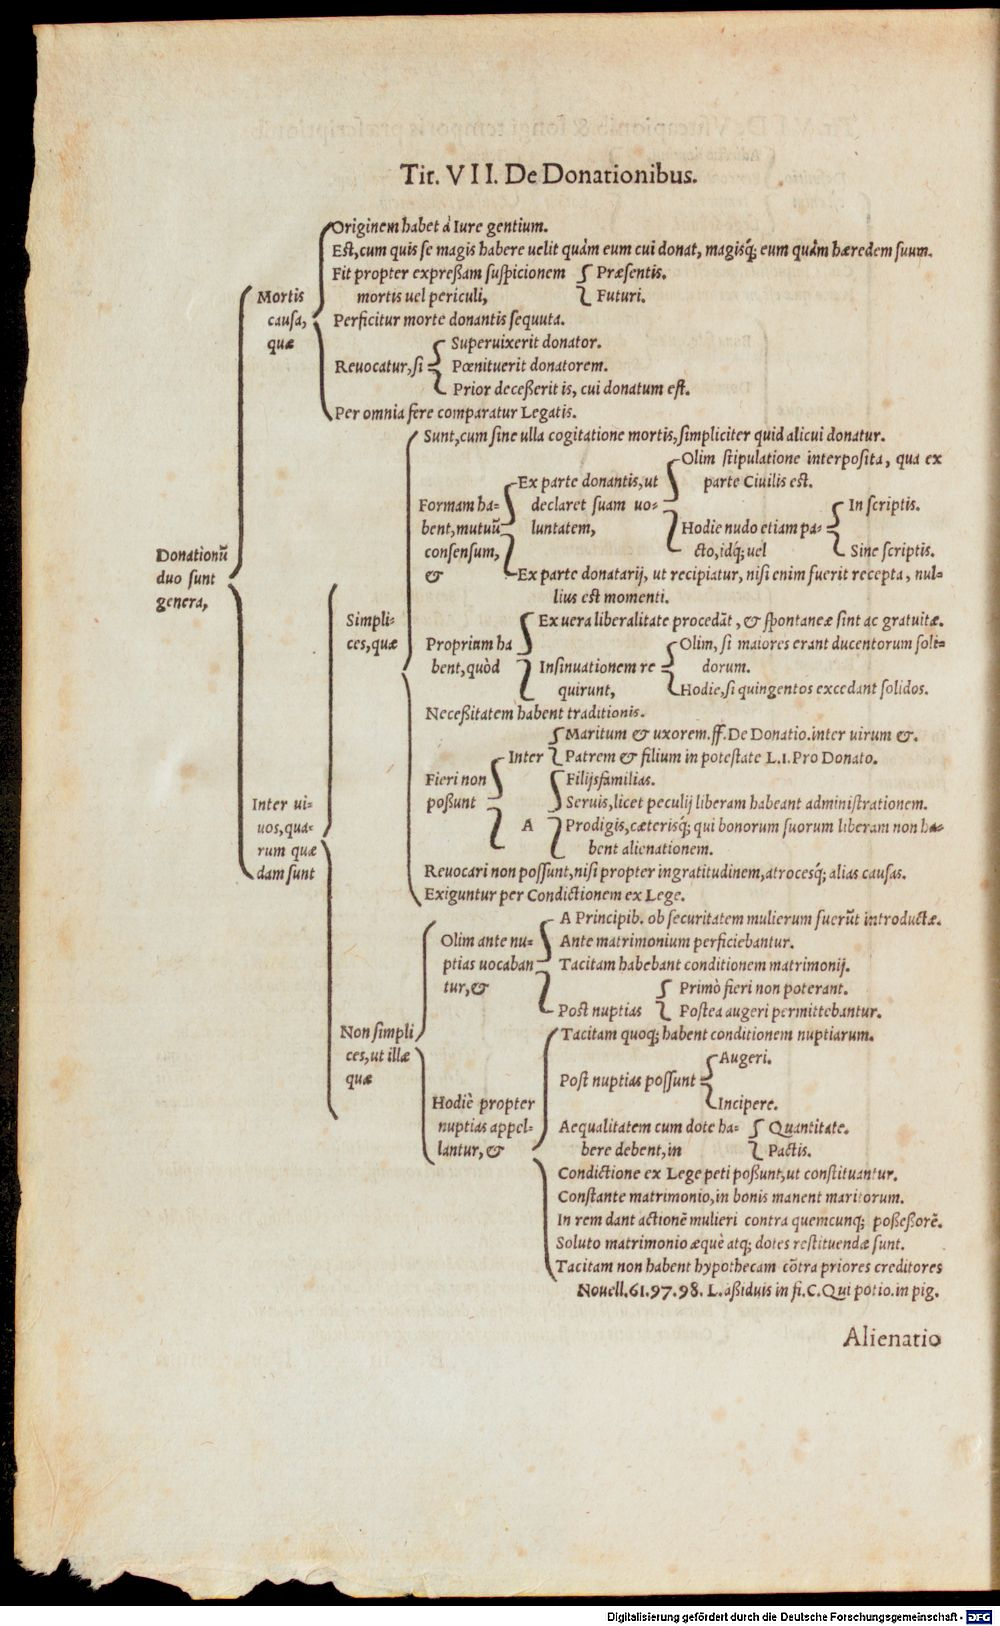 Tit. VII. De Donationibus.
Donationũ
duo sunt
genera,
Mortis
causa,
quæ
Originem habet à Iure gentium.
Est, cum quis se magis habere uelit quàm eum cui donat, magisq́; eum quàm hæredem suum.
Fit propter expreßam suspicionem
mortis uel periculi,
Præsentis.
Futuri.
Perficitur morte donantis sequuta.
Reuocatur, si
Superuixerit donator.
Pœnituerit donatorem.
Prior deceßerit is, cui donatum est.
Per omnia fere comparatur Legatis.
Inter ui-
uos, qua-
rum quæ
dam sunt
Simpli-
ces, quæ
Sunt, cum sine ulla cogitatione mortis, simpliciter quid alicui donatur.
Formam ha-
bent, mutuũ
consensum,
&
Ex parte donantis, ut
declaret suam uo-
luntatem,
Olim stipulatione interposita, qua ex
parte Ciuilis est.
Hodie nudo etiam pa-
cto, idq́; uel
In scriptis.
Sine scriptis.
Ex parte donatarij, ut recipiatur, nisi enim fuerit recepta, nul-
lius est momenti.
Proprium ha
bent, quòd
Ex uera liberalitate procedãt, & spontaneæ sint ac gratuitæ.
Insinuationem re
quirunt,
Olim, si maiores erant ducentorum soli-
dorum.
Hodie, si quingentos excedant solidos.
Neceßitatem habent traditionis.
Fieri non
poßunt
Inter
Maritum & uxorem. ff. De Donatio. inter uirum &.
Patrem & filium in potestate L. 1. Pro Donato.
A
Filijsfamilias.
Seruis, licet peculij liberam habeant administrationem.
Prodigis, cæterisq́; qui bonorum suorum liberam non ha-
bent alienationem.
Reuocari non possunt, nisi propter ingratitudinem, atrocesq́; alias causas.
Exiguntur per Condictionem ex Lege.
Non simpli
ces, ut illæ
quæ
Olim ante nu-
ptias uocaban
tur, &
A Principib. ob securitatem mulierum fuerũt introductæ.
Ante matrimonium perficiebantur.
Tacitam habebant conditionem matrimonij.
Post nuptias
Primò fieri non poterant.
Postea augeri permittebantur.
Hodiè propter
nuptias appel-
lantur, &
Tacitam quoq; habent conditionem nuptiarum.
Post nuptias possunt
Augeri.
Incipere.
Aequalitatem cum dote ha-
bere debent, in
Quantitate.
Pactis.
Condictione ex Lege peti poßunt, ut constituantur.
Constante matrimonio, in bonis manent maritorum.
In rem dant actionẽ mulieri contra quemcunq; poßeßorẽ.
Soluto matrimonio æquè atq; dotes restituendæ sunt.
Tacitam non habent hypothecam cõtra priores creditores
Nouell. 61. 97. 98. L. aßiduis in fi. C. Qui potio. in pig.
Alienatio
Digitalisierung gefördert durch die Deutsche Forschungsgemeinschaft - DFG